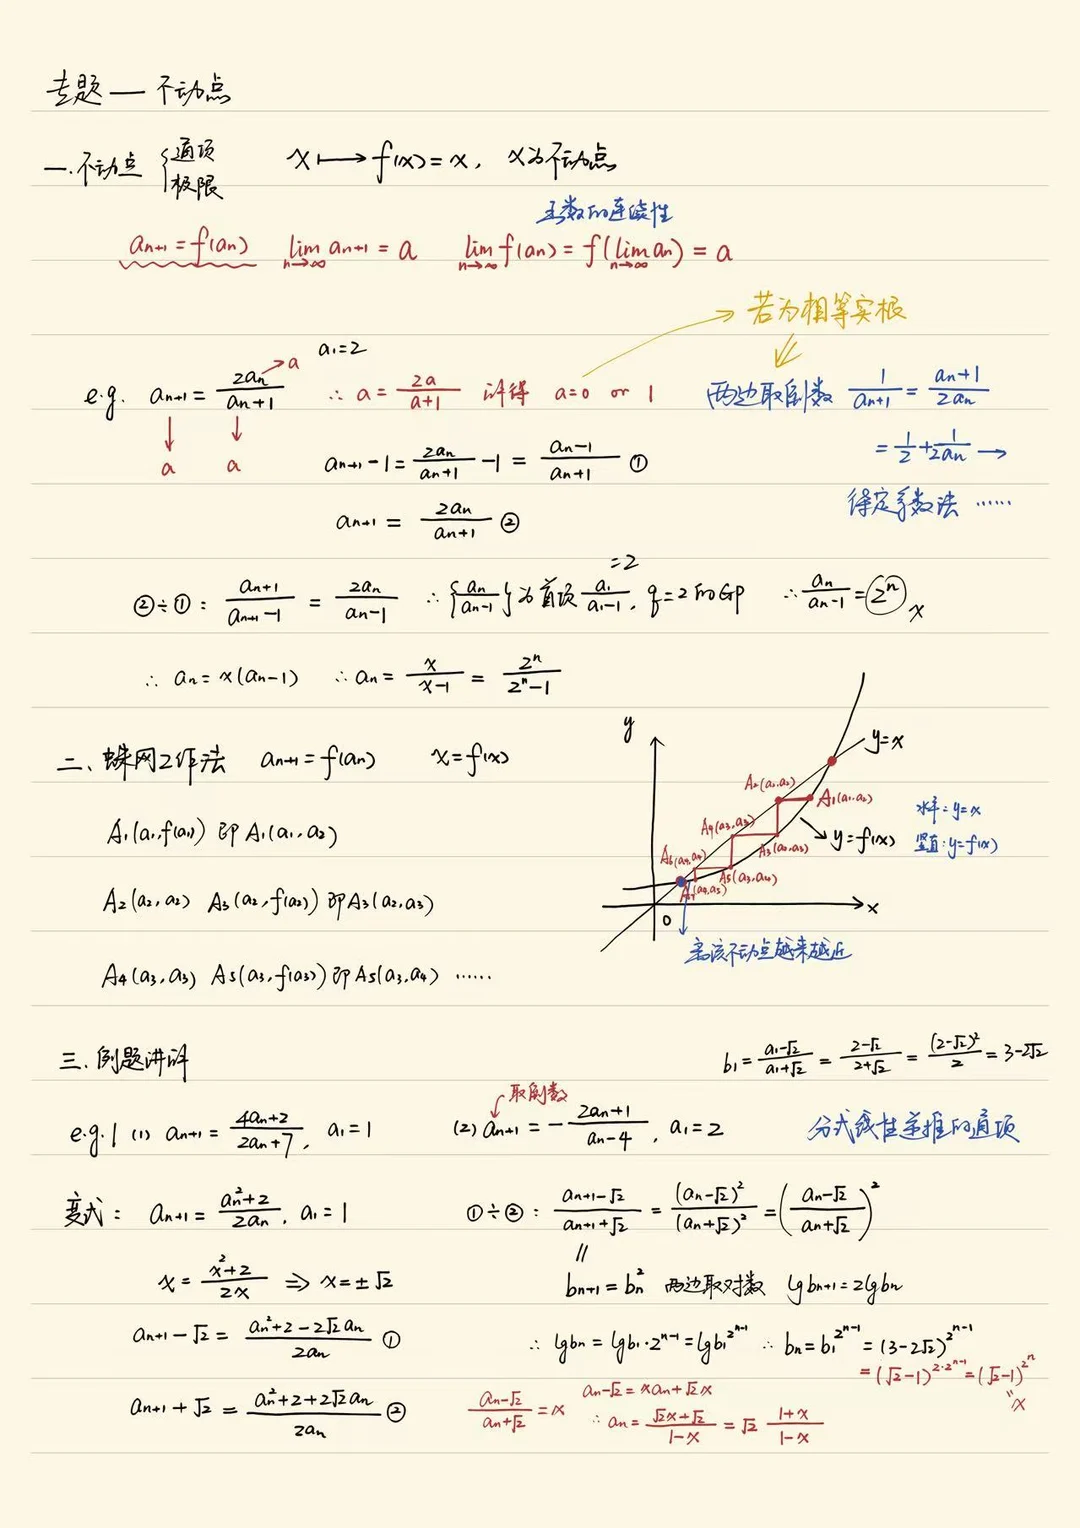 专题一 不动点
一.不动点 {通项 极限 x⟼f(x)=x, x为不动点
函数的连续性
aₙ₊₁=f(aₙ) lim(n→∞) aₙ₊₁=a lim(n→∞) f(aₙ)=f(lim(n→∞) aₙ)=a
→ 若为相等实根
a₁=2
e.g. aₙ₊₁=2aₙ/(aₙ+1) →a ∴ a=2a/(a+1) 解得 a=0 or 1 两边取倒数 1/aₙ₊₁=(aₙ+1)/2aₙ
a a aₙ₊₁-1=2aₙ/(aₙ+1)-1=(aₙ-1)/(aₙ+1) ① =1/2+1/2aₙ→
aₙ₊₁=2aₙ/(aₙ+1) ② 待定系数法……
=2
②÷①: aₙ₊₁/(aₙ₊₁-1)=2aₙ/(aₙ-1) ∴{aₙ/(aₙ-1)}为首项a₁/(a₁-1), q=2的GP ∴aₙ/(aₙ-1)=2ⁿ x
∴ aₙ=x(aₙ-1) ∴aₙ=x/(x-1)=2ⁿ/(2ⁿ-1)
二、蛛网工作法 aₙ₊₁=f(aₙ) x=f(x)
A₁(a₁,f(a₁))即A₁(a₁,a₂)
A₂(a₂,a₂) A₃(a₂,f(a₂))即A₃(a₂,a₃)
A₄(a₃,a₃) A₅(a₃,f(a₃))即A₅(a₃,a₄)……
y
y=x
A₂(a₂,a₂) A₁(a₁,a₂)
水平:y=x
A₄(a₃,a₃) A₃(a₂,a₃) y=f(x)
竖直:y=f(x)
A₆(a₄,a₄) A₅(a₃,a₄)
A₇(a₄,a₅)
0 x
离该不动点越来越近
三.例题讲解
b₁=(a₁-√2)/(a₁+√2)=(2-√2)/(2+√2)=(2-√2)²/2=3-2√2
取倒数
e.g.1 (1) aₙ₊₁=(4aₙ+2)/(2aₙ+7), a₁=1 (2) aₙ₊₁=-(2aₙ+1)/(aₙ-4), a₁=2 分式线性递推的通项
变式: aₙ₊₁=(aₙ²+2)/2aₙ, a₁=1
x=(x²+2)/2x ⇒ x=±√2
aₙ₊₁-√2=(aₙ²+2-2√2aₙ)/2aₙ ①
aₙ₊₁+√2=(aₙ²+2+2√2aₙ)/2aₙ ②
①÷②: (aₙ₊₁-√2)/(aₙ₊₁+√2)=(aₙ-√2)²/(aₙ+√2)²=((aₙ-√2)/(aₙ+√2))²
||
bₙ₊₁=bₙ² 两边取对数 lgbₙ₊₁=2lgbₙ
∴ lgbₙ=lgb₁·2ⁿ⁻¹=lgb₁^(2ⁿ⁻¹) ∴ bₙ=b₁^(2ⁿ⁻¹)=(3-2√2)^(2ⁿ⁻¹)
=(√2-1)^(2·2ⁿ⁻¹)=(√2-1)^(2ⁿ)
"x
(aₙ-√2)/(aₙ+√2)=x aₙ-√2=xaₙ+√2x
∴ aₙ=(√2x+√2)/(1-x)=√2 (1+x)/(1-x)